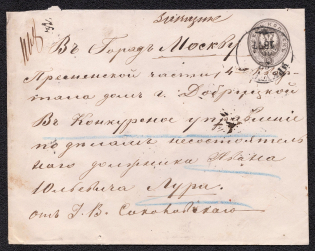 Въ Городъ Москву
Пресненской части 4
тала домъ г. Добрецкой
Въ Конкурсное управленіе
по дѣламъ несостоятель
наго должника Ивана
Юльевича Лури.
отъ Д. В. Соковскаго